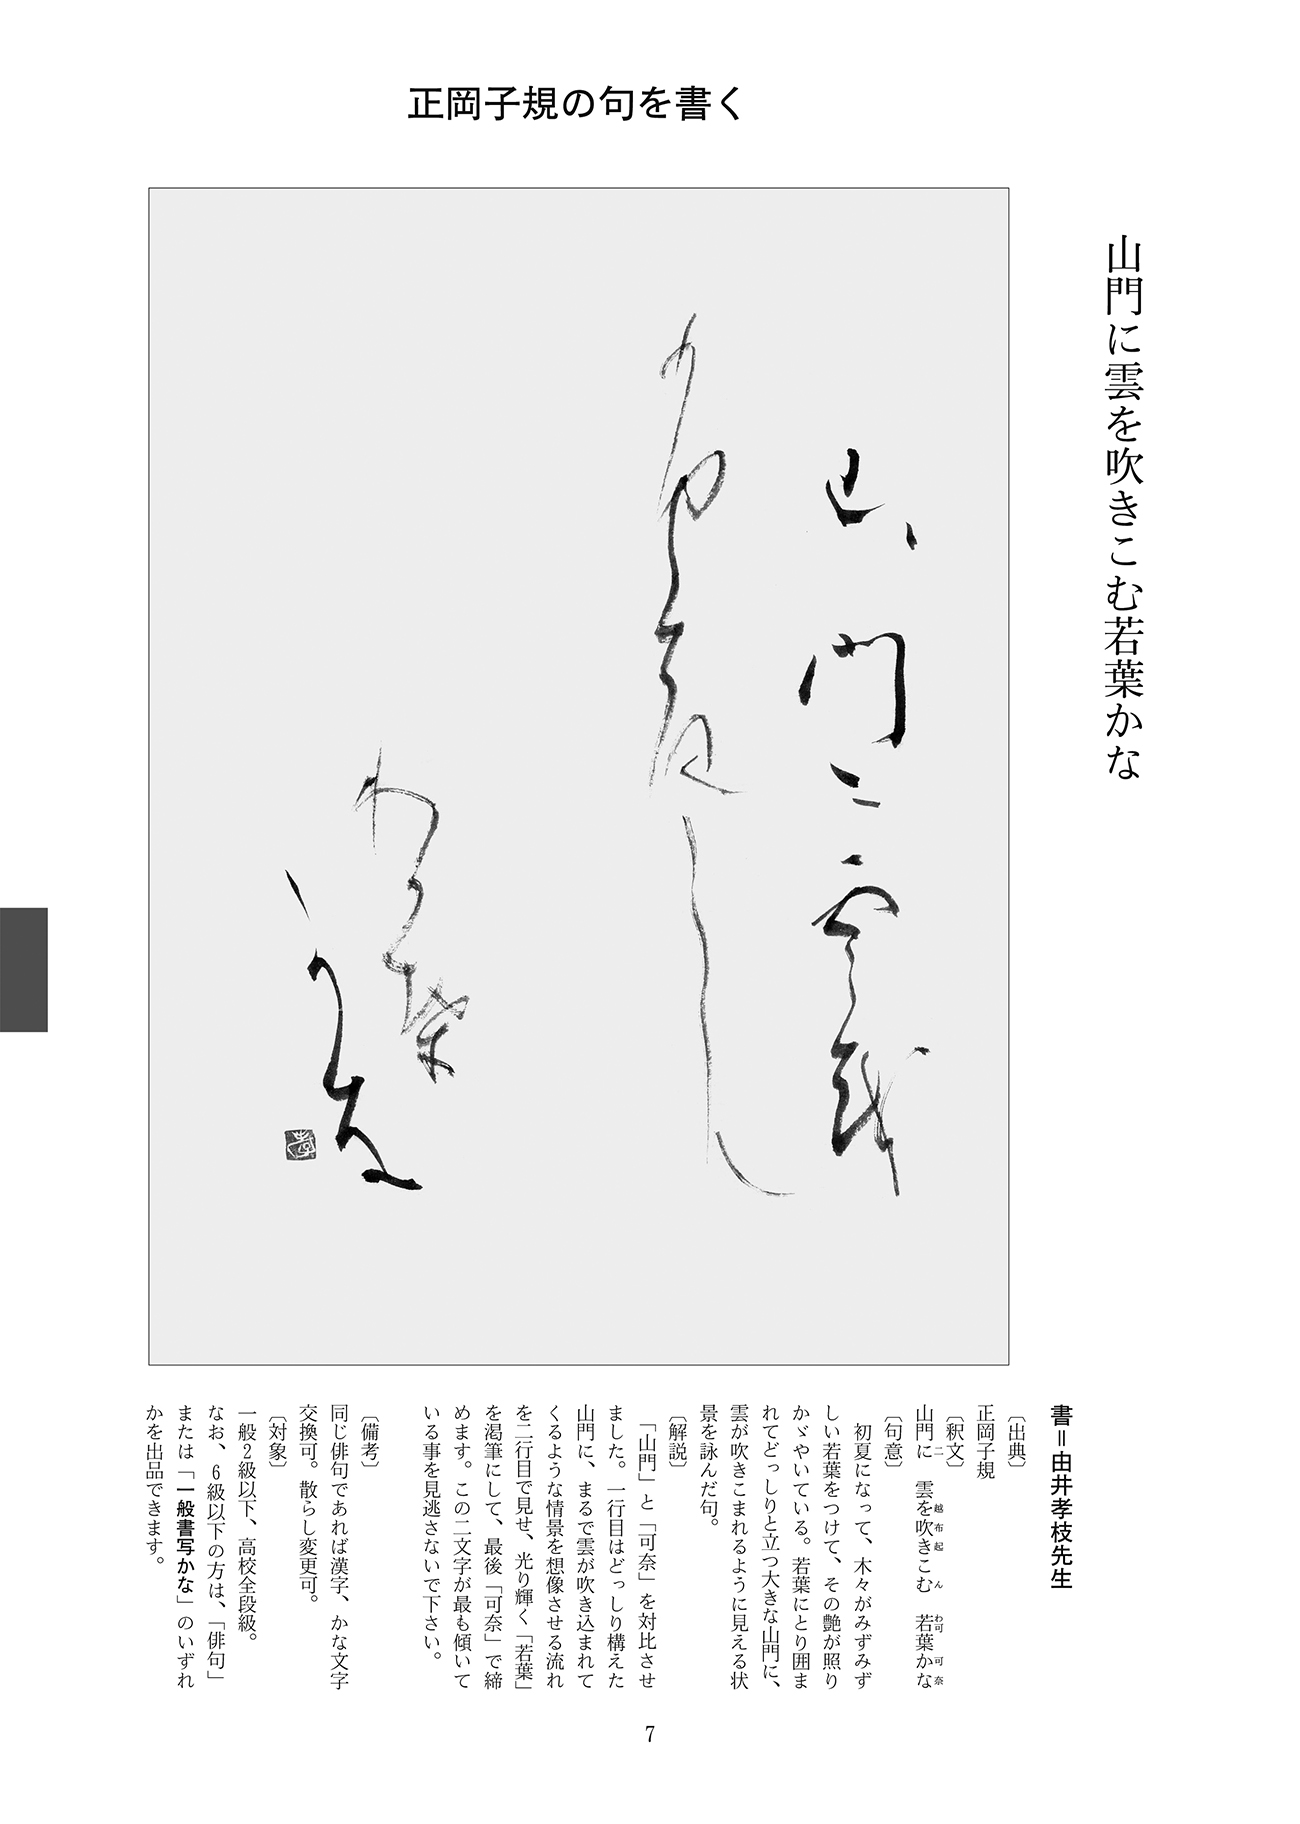 正岡子規の句を書く
山門に雲を吹きこむ若葉かな
書＝由井孝枝先生
〔出典〕
正岡子規
〔釈文〕
山門に　雲を吹きこむ　若葉かな
二　越布起　ん　わ可　可奈
〔句意〕
初夏になって、木々がみずみず
しい若葉をつけて、その艶が照り
かゞやいている。若葉にとり囲ま
れてどっしりと立つ大きな山門に、
雲が吹きこまれるように見える状
景を詠んだ句。
〔解説〕
「山門」と「可奈」を対比させ
ました。一行目はどっしり構えた
山門に、まるで雲が吹き込まれて
くるような情景を想像させる流れ
を二行目で見せ、光り輝く「若葉」
を渇筆にして、最後「可奈」で締
めます。この二文字が最も傾いて
いる事を見逃さないで下さい。
〔備考〕
同じ俳句であれば漢字、かな文字
交換可。散らし変更可。
〔対象〕
一般２級以下、高校全段級。
なお、６級以下の方は、「俳句」
または「一般書写かな」のいずれ
かを出品できます。
山門二雲越
布起こん
わ可葉
可奈
7